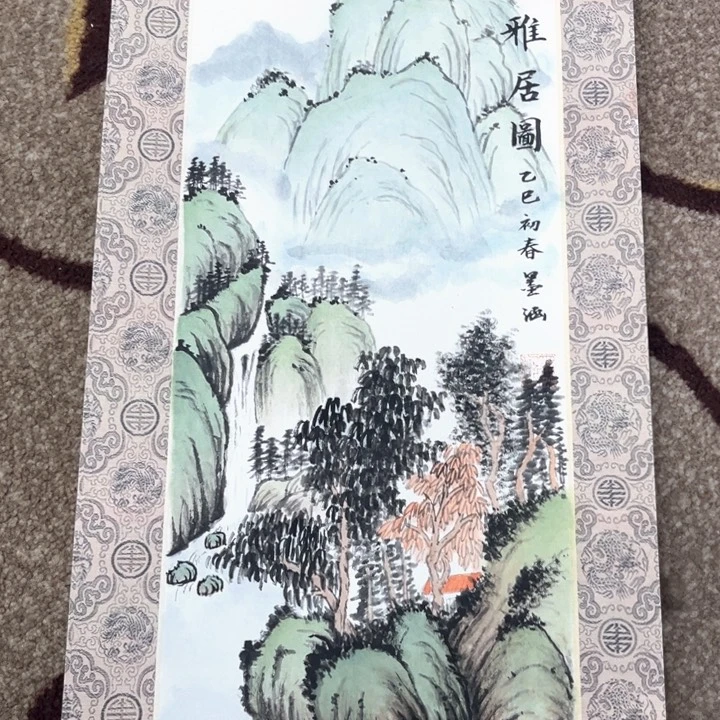 雅居圖
乙巳初春墨涵